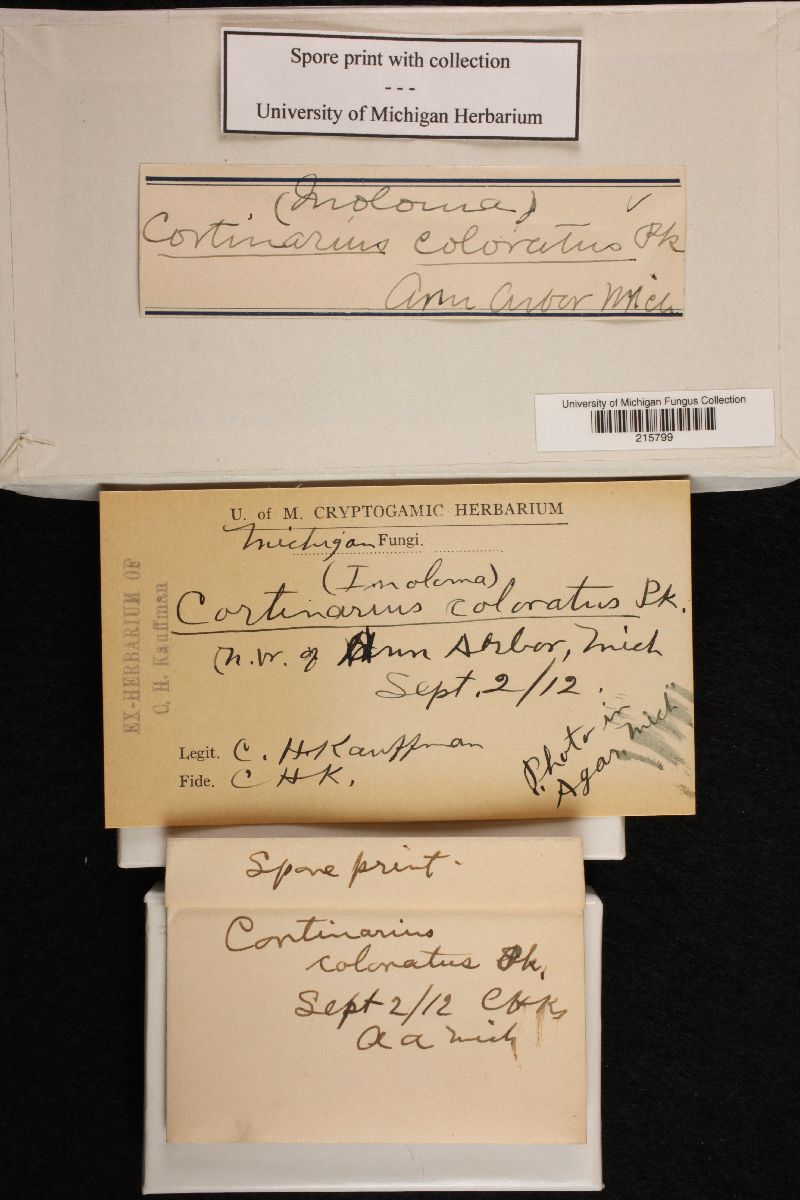 Spore print with collection
---
University of Michigan Herbarium
(Inoloma) ✓
Cortinarius coloratus Pk
Ann Arbor Mich.
University of Michigan Fungus Collection
215799
U. of M. CRYPTOGAMIC HERBARIUM
Michigan Fungi.
(Inoloma)
Cortinarius coloratus Pk.
(n.w. of Ann Arbor, Mich
Sept. 2/12.
Legit. C. H. Kauffman
Fide. C H K.
Photo in
Agar. Mich"
EX-HERBARIUM OF
C. H. Kauffman
Spore print.
Cortinarius
coloratus Pk,
Sept 2/12 CHK,
A a Mich